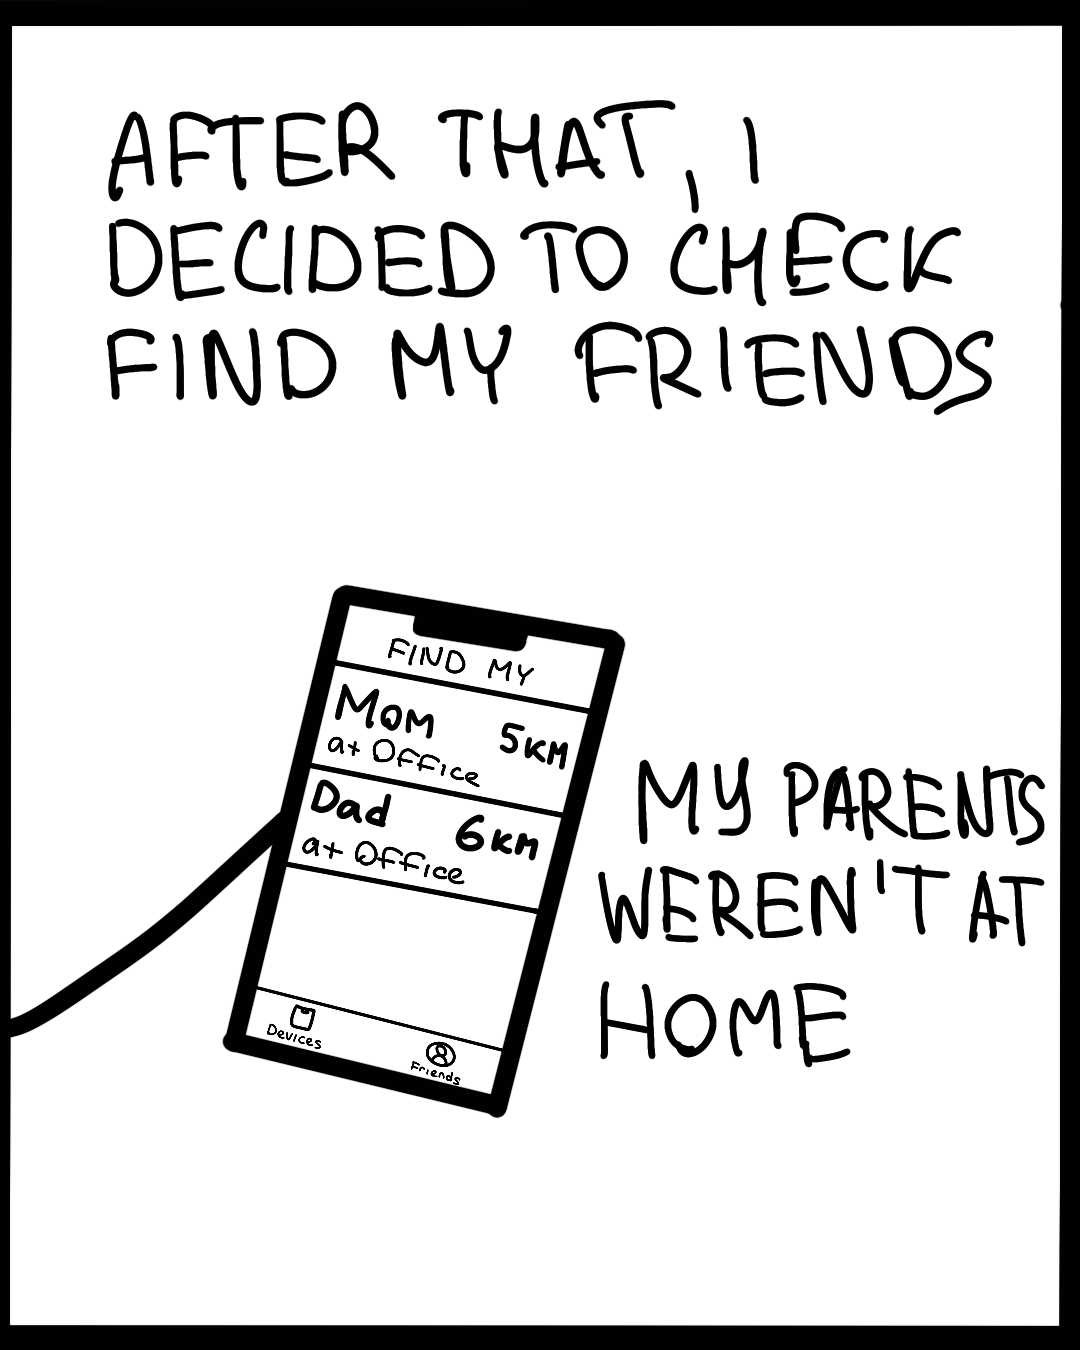 AFTER THAT, I
DECIDED TO CHECK
FIND MY FRIENDS
FIND MY
MOM 5KM
at Office
Dad 6KM
at Office
Devices
Friends
MY PARENTS
WEREN'T AT
HOME